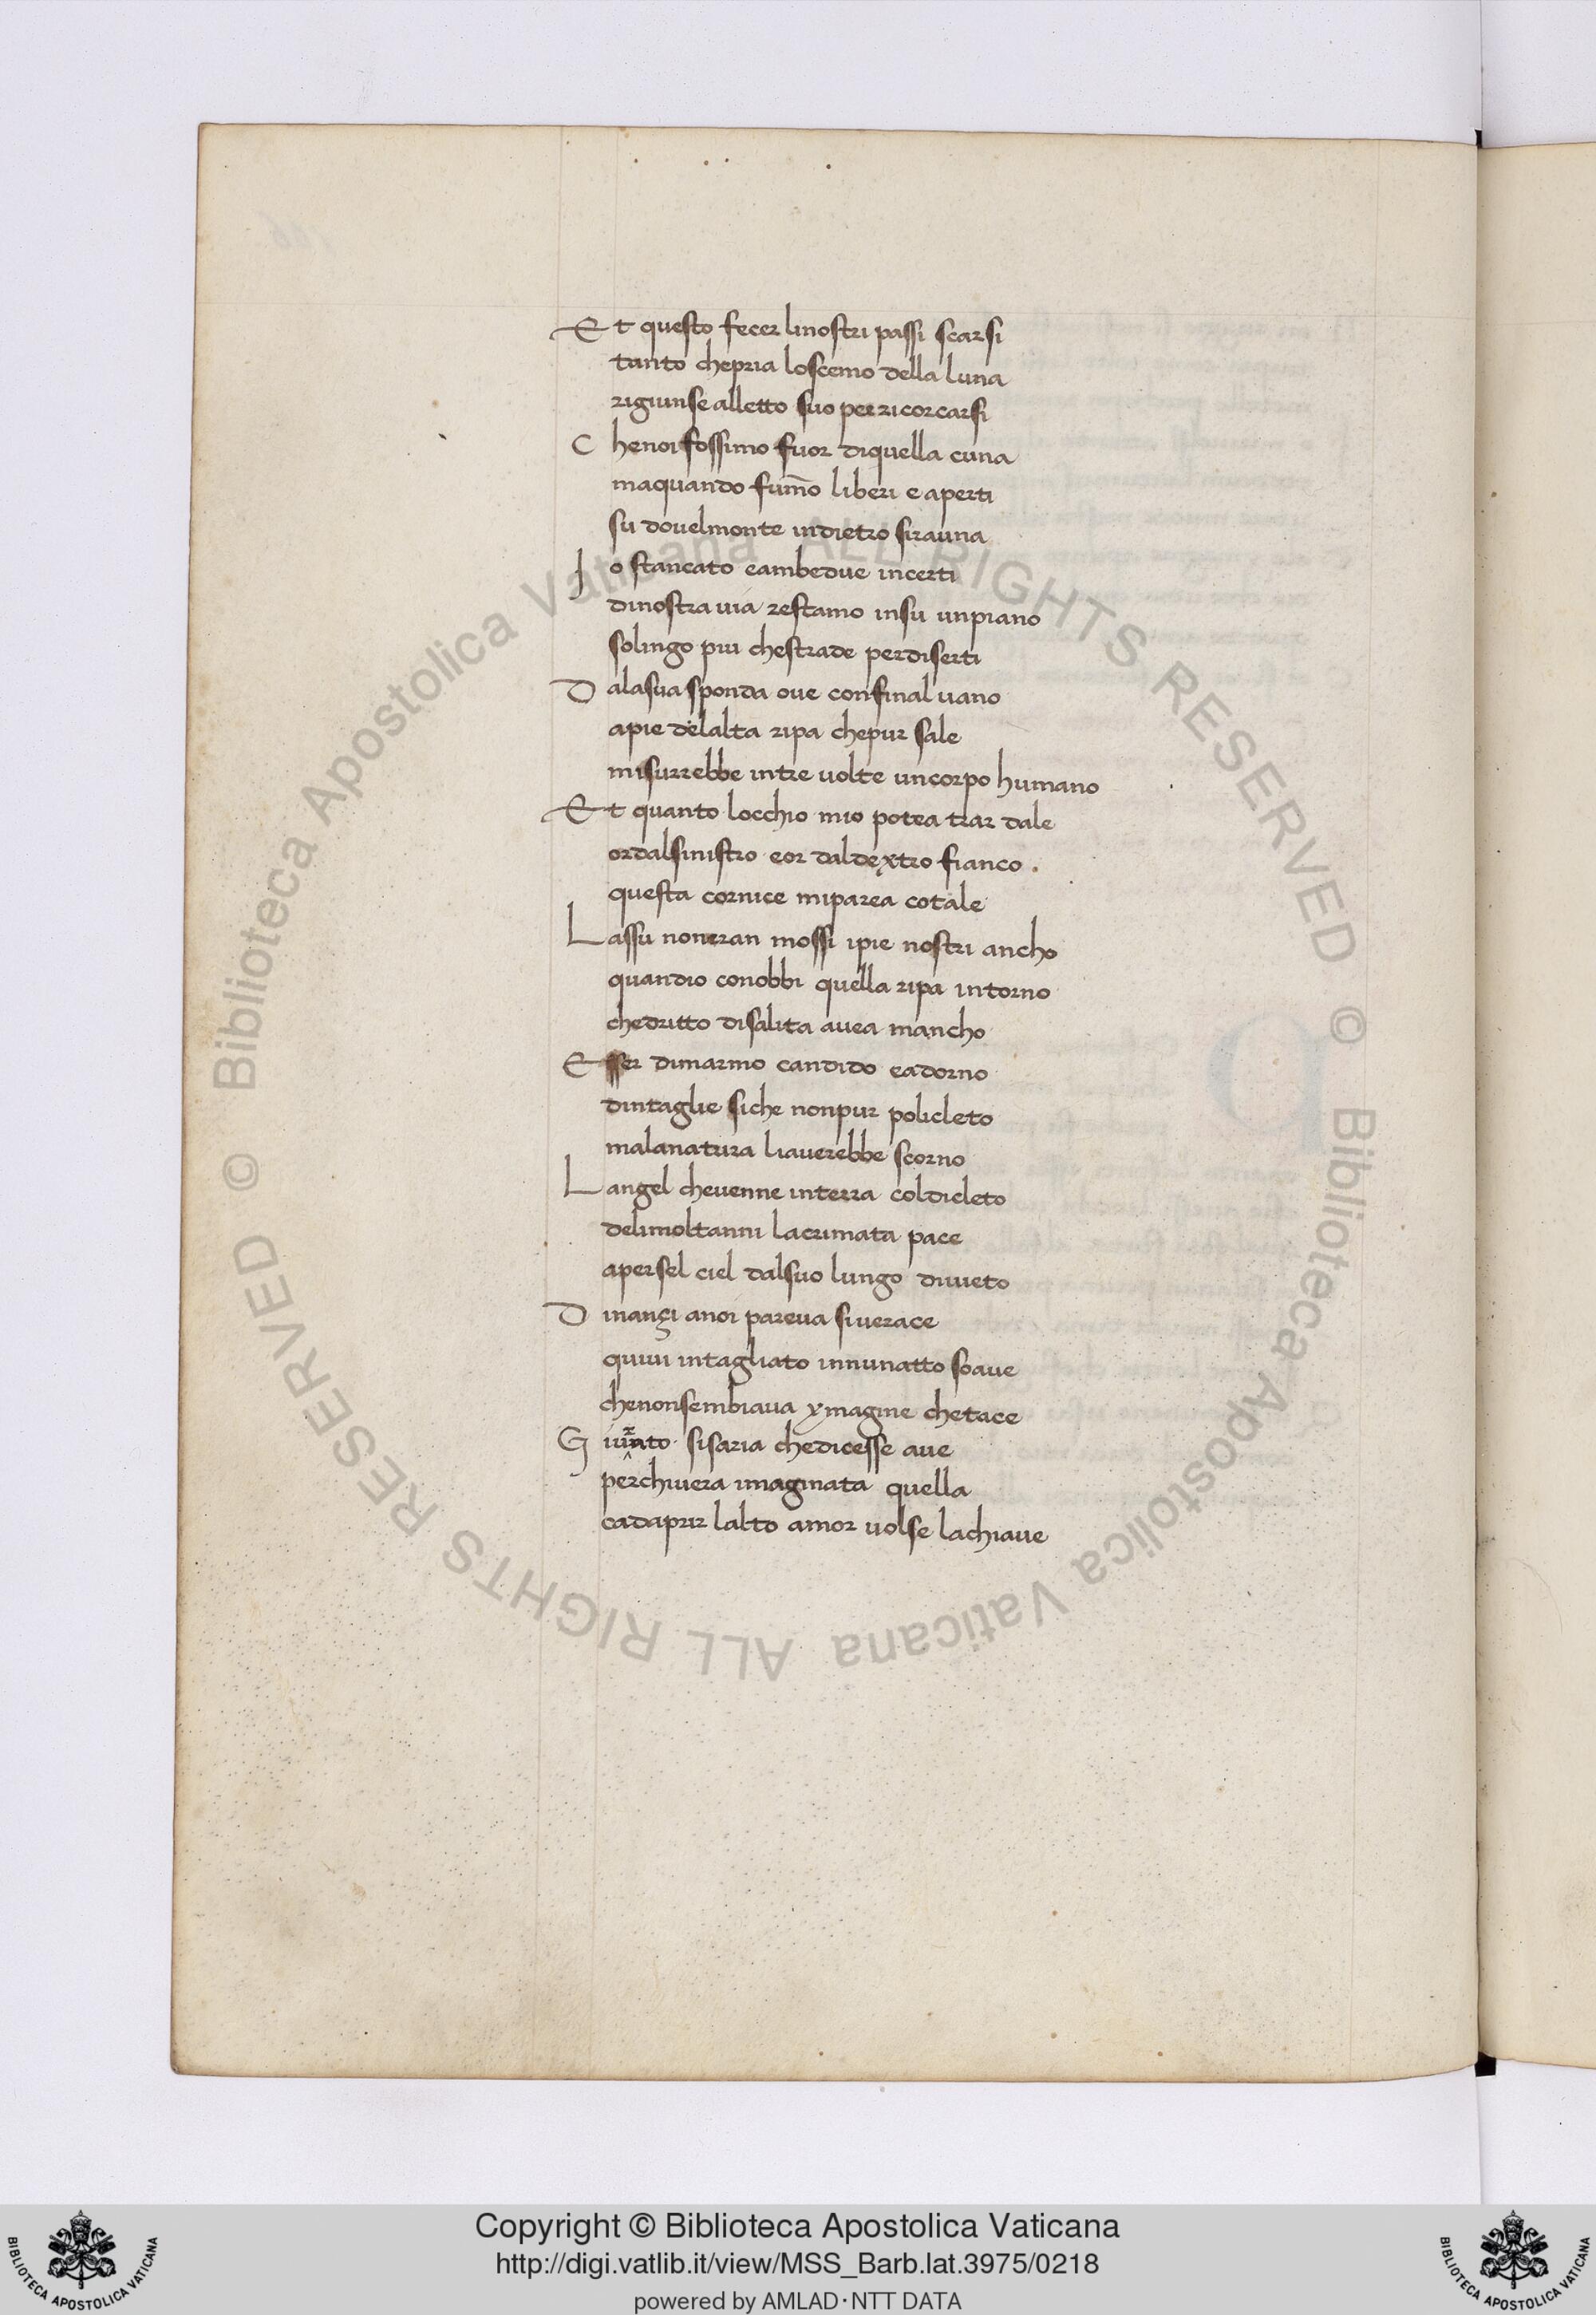 Et questo fecer linostri passi scarsi
tanto chepria loscemo della luna
rigiunse alletto suo per ricorcarsi
C henoi fossimo fuor diquella cuna
maquando fum̄o liberi e aperti
su dovelmonte indietro sirauna
I o stancato eambedue incerti
dinostra via restamo insu unpiano
solingo piu chestrade perdiserti
D alasua sponda ove confinal vano
apie delalta ripa chepur sale
misurrebbe intre volte uncorpo humano
Et quanto locchio mio potea trar dale
ordalsinistro eor daldextro fianco .
questa cornice miparea cotale
L assu noneran mossi ipie nostri ancho
quandio conobbi quella ripa intorno
chedritto disalita avea mancho
E sser dimarmo candido eadorno
dintaglie siche nonpur policleto
malanatura liaverebbe scorno
L angel chevenne interra coldicleto
delimoltanni lacrimata pace
apersel ciel dalsuo lungo diveto
D inançi anoi pareva siverace
quivi intagliato innunatto soave
chenonsembiava ymagine chetace
G iurato sisaria chedicesse ave
perchivera imaginata quella
cadaprir lalto amor volse lachiave
© Biblioteca Apostolica Vaticana ALL RIGHTS RESERVED © Biblioteca Apostolica Vaticana ALL RIGHTS RESERVED
Copyright © Biblioteca Apostolica Vaticana
http://digi.vatlib.it/view/MSS_Barb.lat.3975/0218
powered by AMLAD·NTT DATA
BIBLIOTECA APOSTOLICA VATICANA
BIBLIOTECA APOSTOLICA VATICANA